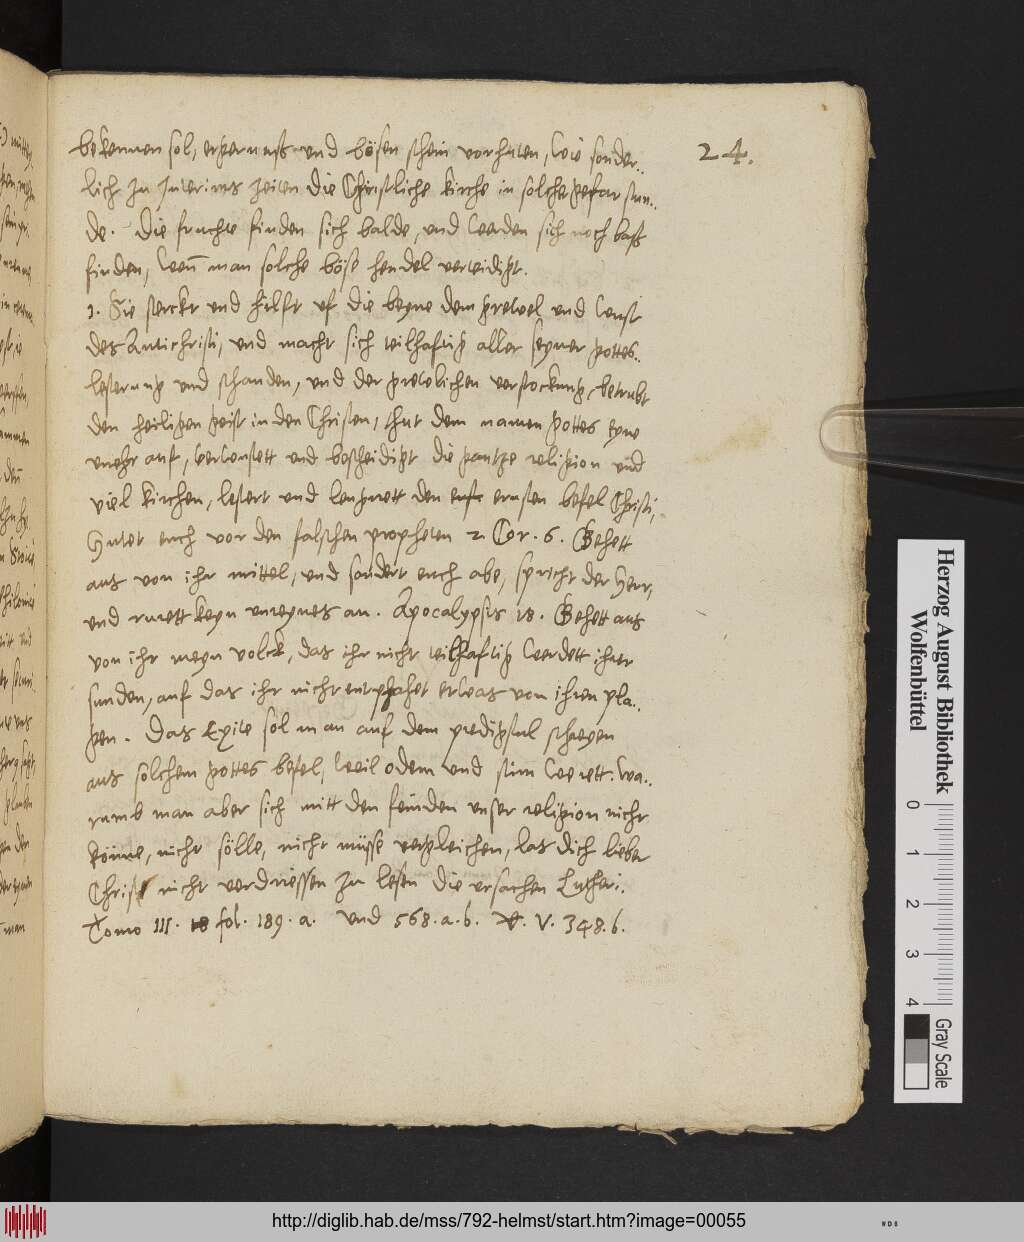 24.
bekennen sol, ergernuß und bösen schein vorhüten, wie sonder..
lich zu Interims zeiten die Christliche kirche in solcher gefar stun..
de. Die fruchte finden sich balde, und werden sich noch baß
finden, wen̄ man solche böse hendel verteidigt.
3. Sie sterckt und hilfft uf die beyne dem grewel und
des Antichristi, und macht sich teilhafftig aller seyner gottes..
lesterung und schanden, und der grewlichen verstockung, betrubt
den heiligen geist in den Christen, thut dem namen gottes eyne
unehr ant, verwustett und bescheidigt die gantze religion und
viel kirchen, lestert und leugnett den ernsten befel Christi,
Hutet euch vor den falschen propheten 2 Cor. 6. Gehett
aus von ihr mittel, und sondert euch abe, spricht der Herr,
und rurett keyn unreynes an. Apocalypsis 18. Gehett aus
von ihr meyn volck, das ihr nicht teilhafftig werdett ihrer
sunden, auf das ihr nicht entpfahet etwas von ihren pla..
gen. Das Exite sol man auf dem predigstul schreyen
aus solchem gottes befel, weil odem und stim werett: Wa..
rumb man aber sich mitt den feinden unser religion nicht
könne, nicht sölle, nicht müsse vergleichen, las dich lieber
Christ nicht verdriessen zu lesen die ursachen Lutheri..
Tomo III. fol. 189. a. Und 568. a. b. V. 348. b.
Herzog August Bibliothek
Wolfenbüttel
0 1 2 3 4
Gray Scale
http://diglib.hab.de/mss/792-helmst/start.htm?image=00055